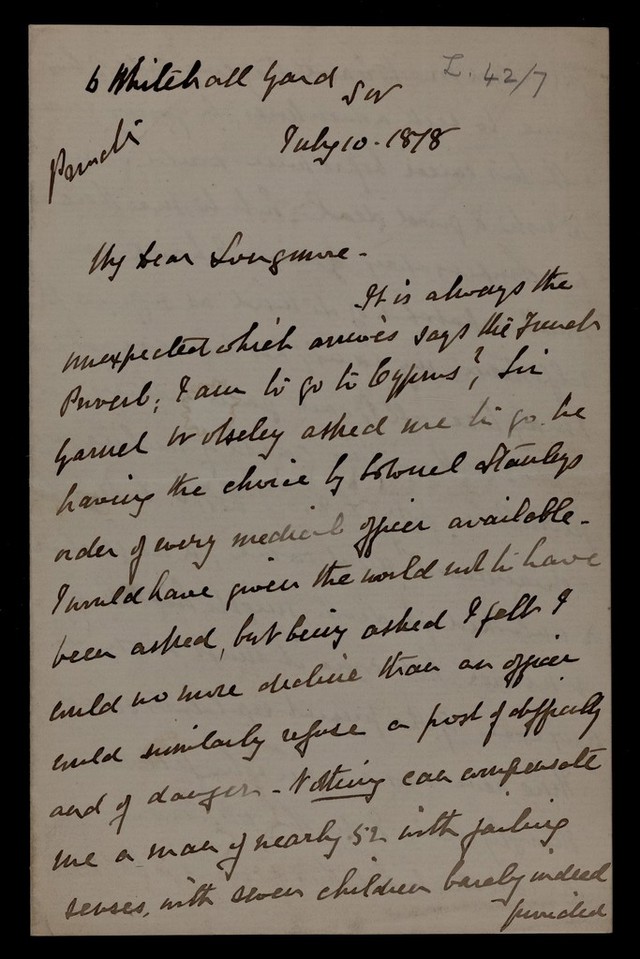 6 Whitehall Yard
SW
L. 42/7
July 10 - 1878
Private
My dear Longmore -
It is always the
unexpected which arrives says the French
Proverb; I am to go to Cyprus, Sir
Garnet Wolseley asked me to go. he
having the choice by Colonel Stanleys
order of every medical officer available -
I would have given the world not to have
been asked, but being asked I felt I
could no more decline than an officer
could similarly refuse a post of difficulty
and of danger - Nothing can compensate
me a man of nearly 52 with failing
senses, with seven children barely indeed
provided